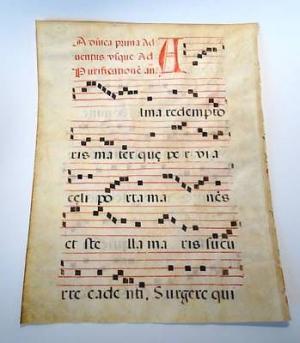 A dnica prima Ad
uentus vsque Ad
Purificationē an̄.
A
lma redempto
ris ma ter quę pe r vi a
celi po rta ma nēs
et ste lla ma ris sucu
rre cade nti, Surgere qui